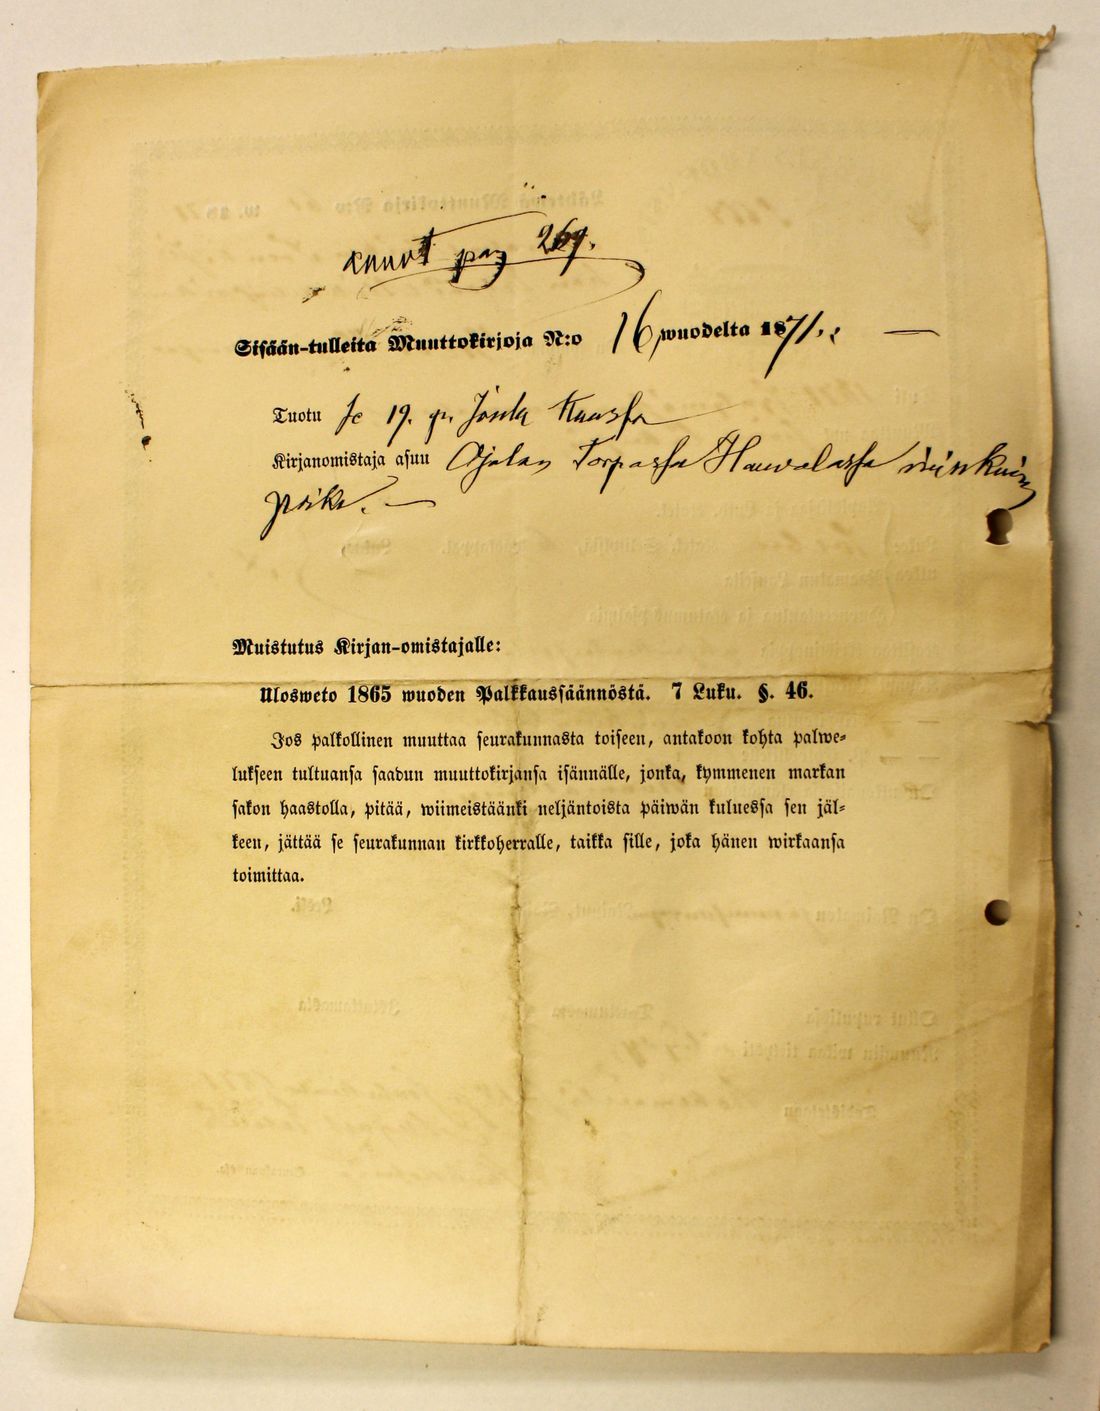 pag 269.
Sisään-tulleita Muuttokirjoja N:o 16 wuodelta 1871.
Tuotu je 19. p. Joulu Kuussa
Kirjanomistaja asuu Ojalan Torpassa Hauvalassa niinkuin
poika. —
Muistutus Kirjan-omistajalle:
Ulosweto 1865 wuoden Palkkaussäännöstä. 7 Luku. §. 46.
Jos palkollinen muuttaa seurakunnasta toiseen, antakoon kohta palwe-
lukseen tultuansa saadun muuttokirjansa isännälle, jonka, kymmenen markan
sakon haastolla, pitää, wiimeistäänki neljäntoista päiwän kuluessa sen jäl-
keen, jättää se seurakunnan kirkkoherralle, taikka sille, joka hänen wirkaansa
toimittaa.